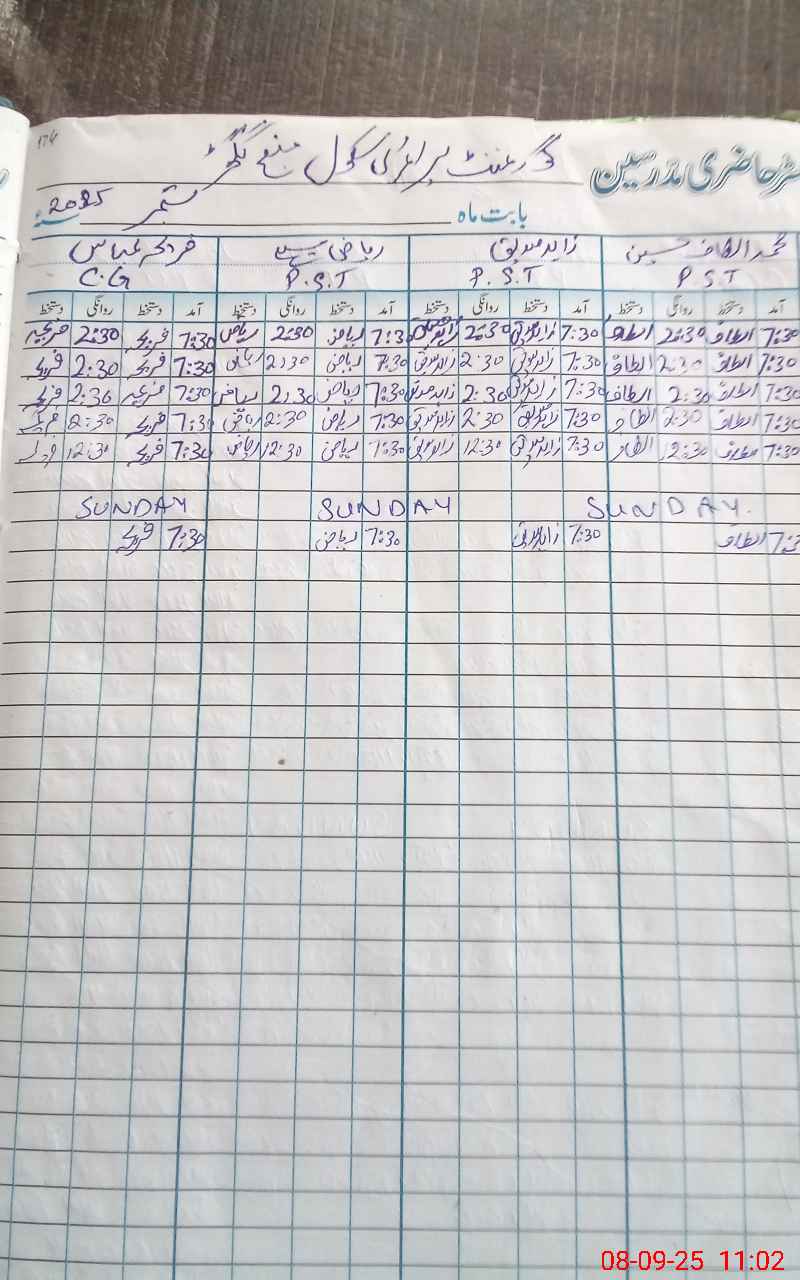 174
گورنمنٹ پرائمری سکول
ٹر حاضری مدرسین
بابت ماہ ستمبر 2025
محمد الطاف حسین زاہد صدیق ریاض فریحہ عباس
P.S.T P.S.T P.S.T C.G
آمد دستخط روانگی دستخط آمد دستخط روانگی دستخط آمد دستخط روانگی دستخط آمد دستخط روانگی دستخط
7:30 الطاف 2:30 الطاف 7:30 زاہد صدیق 2:30 زاہد صدیق 7:30 ریاض 2:30 ریاض 7:30 فریحہ 2:30 فریحہ
7:30 الطاف 2:30 الطاف 7:30 زاہد صدیق 2:30 زاہد صدیق 7:30 ریاض 2:30 ریاض 7:30 فریحہ 2:30 فریحہ
7:30 الطاف 2:30 الطاف 7:30 زاہد صدیق 2:30 زاہد صدیق 7:30 ریاض 2:30 ریاض 7:30 فریحہ 2:30 فریحہ
7:30 الطاف 2:30 الطاف 7:30 زاہد صدیق 2:30 زاہد صدیق 7:30 ریاض 2:30 ریاض 7:30 فریحہ 2:30 فریحہ
7:30 الطاف 12:30 الطاف 7:30 زاہد صدیق 12:30 زاہد صدیق 7:30 ریاض 12:30 ریاض 7:30 فریحہ 12:30 فریحہ
SUNDAY SUNDAY SUNDAY.
7:3 الطاف 7:30 زاہد صدیق 7:30 ریاض 7:30 فریحہ
08-09-25 11:02